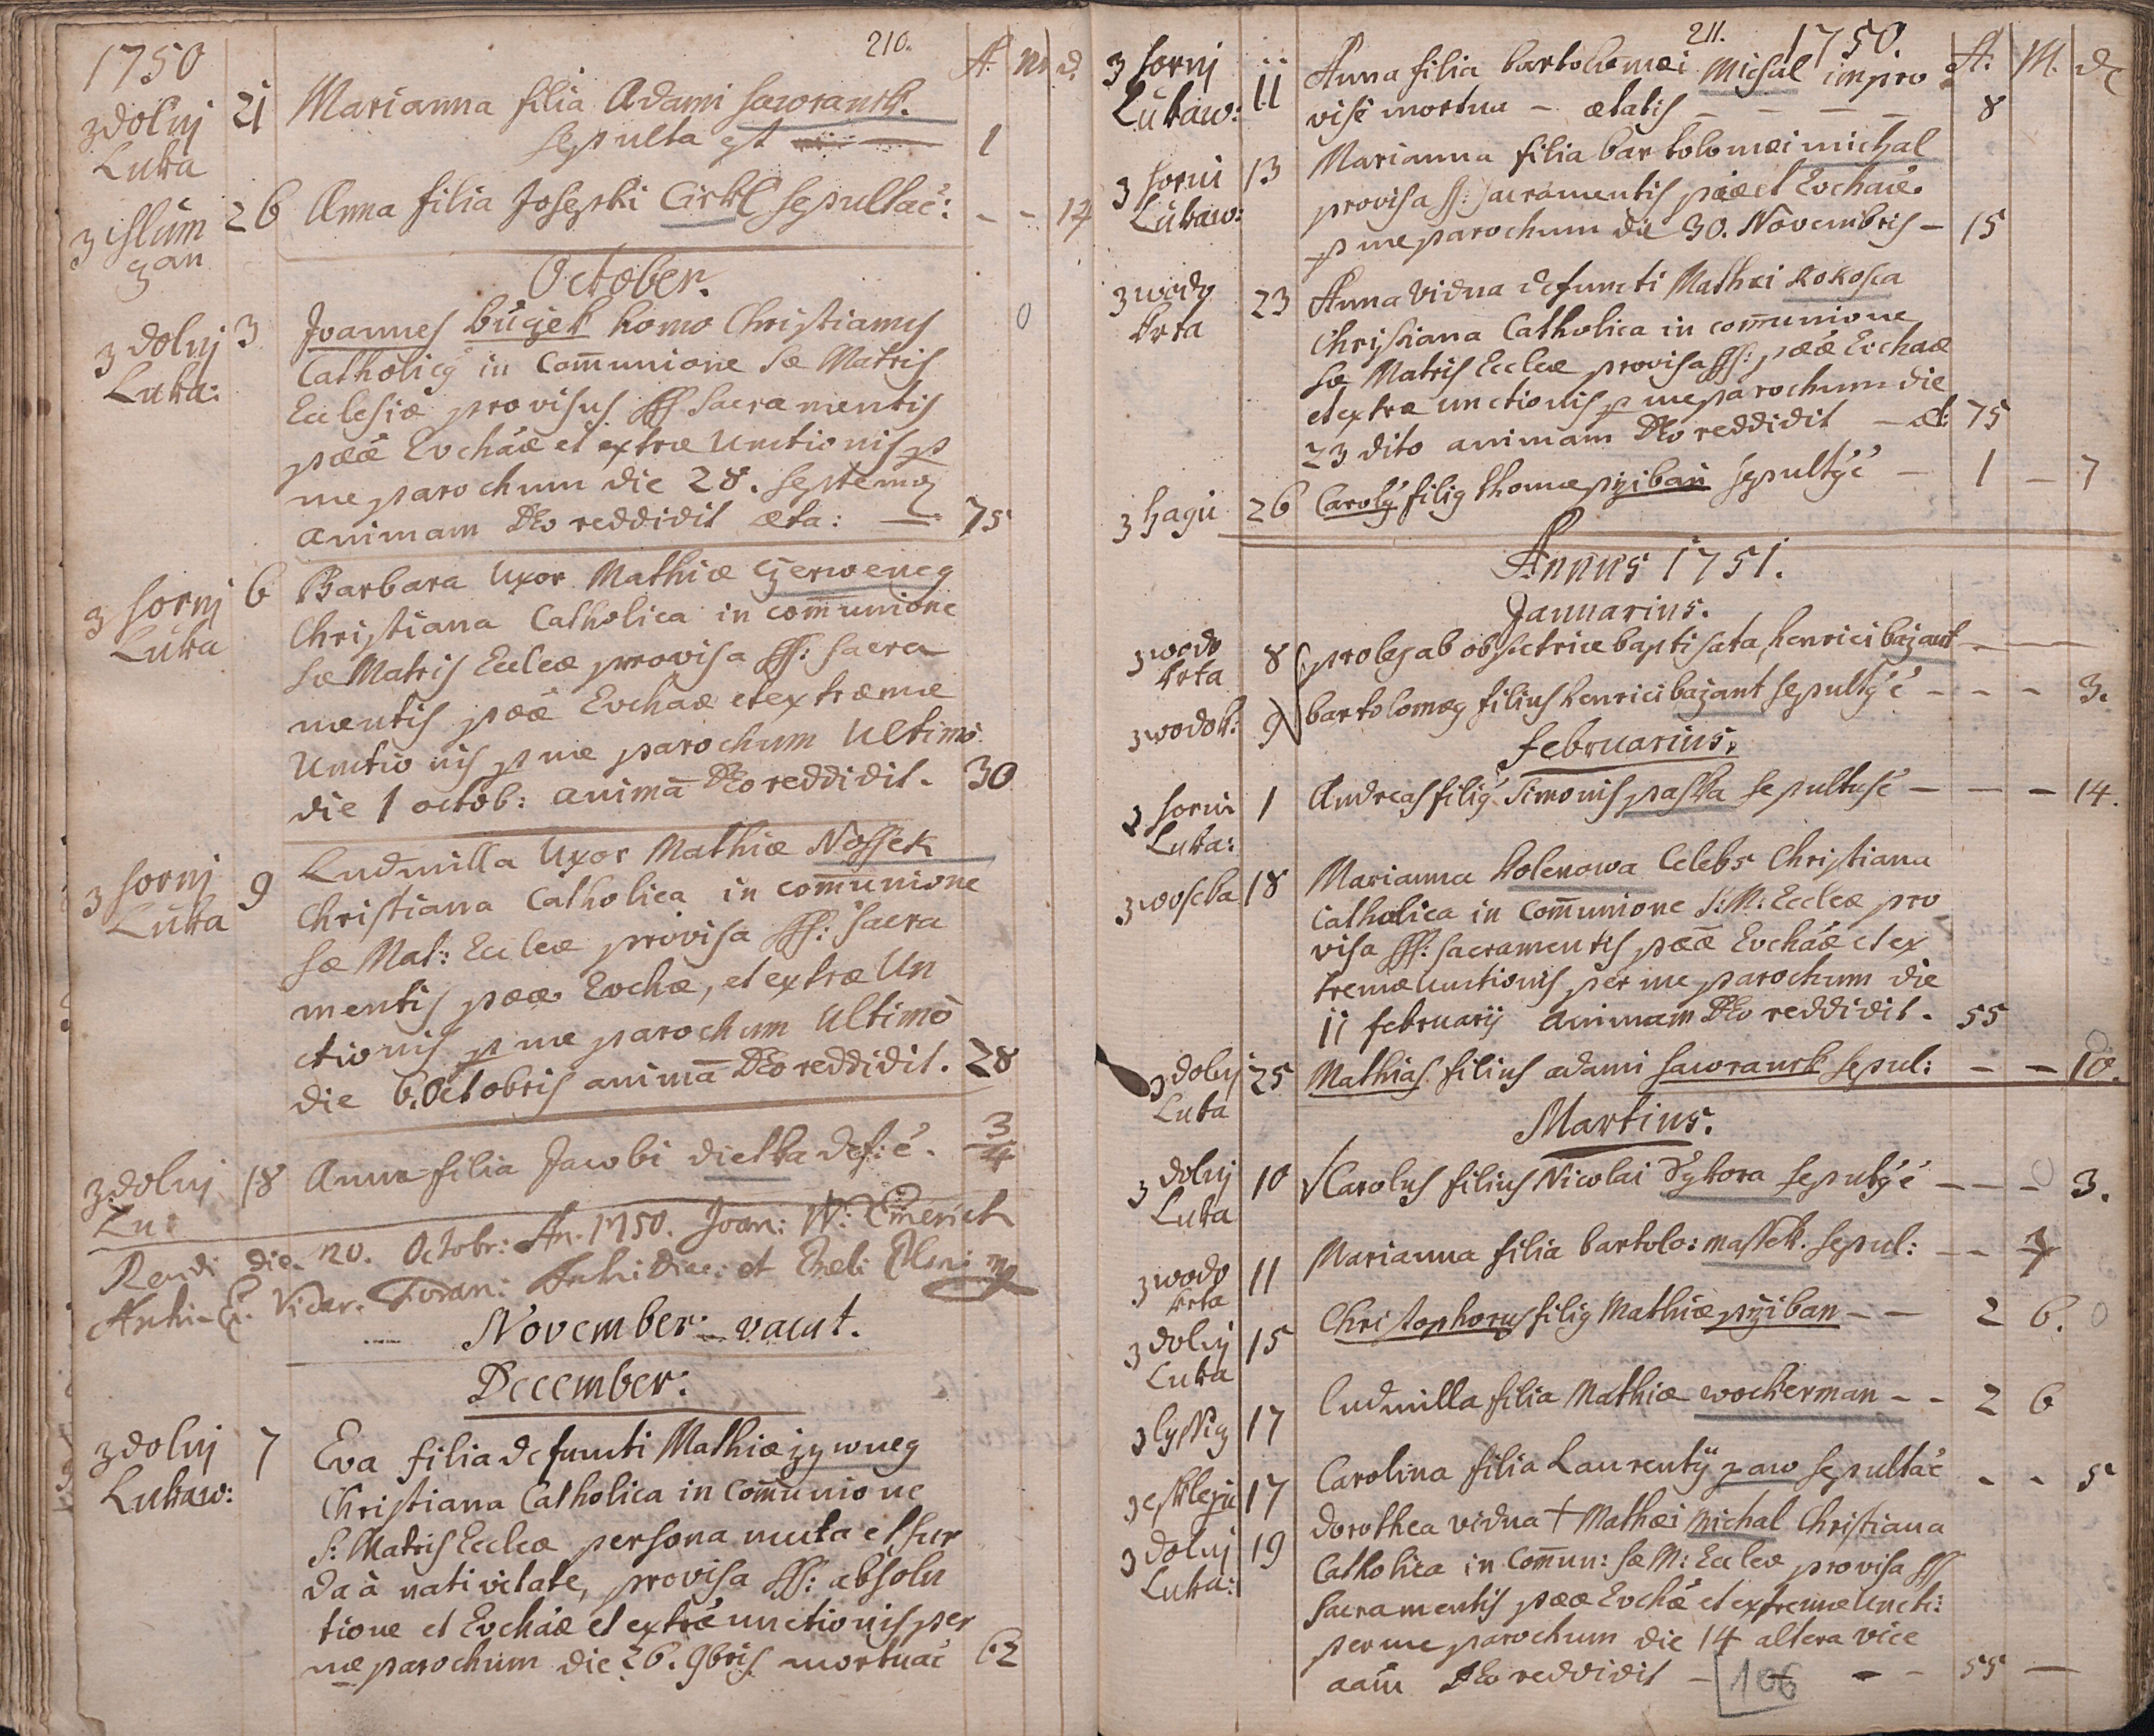 1750
210.
A. M. d.
z dolnj 21 Marianna filia Adami Saworansk.
Luka sepulta est 1
z Chlum 26 Anna filia Josephi Cirkl sepulta é: - - 17
zan
October.
z dolnj 3 Joannes bugek homo Christianus 0
Luka: Catholicq in Com̄unione Sæ Matris
Ecclesiæ provisus SS Sacramentis
pææ Evchäæ et extræ Unctionis p
me parochum die 28. Septemq
animam Deo reddidit æta: — 75
z hornj 6 Barbara Uxor Mathiæ Czerweneg
Luka Christiana Catholica in com̄unione
Sæ Matris Eccleæ provisa SS: Sacra
mentis pææ Evchaæ et extremæ
Unctionis p me parochum Ultimò
die 1 octob: animā Deo reddidit. 30
z hornj 9 Ludmilla Uxor Mathiæ Nossek
Luka Christiana Catholica in com̄unione
Sæ Mat: Eccleæ provisa SS: Sacra
mentis pææ Evchæ, et extræ Un
ctionis p me parochum Ultimò
die 6. Octobris animā Deo reddidit. 28
z dolnj 18 Anna filia Jacobi dietka def: é. 3/4
Lu:
Rendi die 20. Octobr: An. 1750. Joan: W: Emerich
Vicar. Foran: et
November: vacat.
December:
z dolnj 7 Eva filia defuncti Mathiæ zywneg
Lukaw: Christiana Catholica in Com̄unione
S: Matris Eccleæ persona muta et sur
da à nativitate, provisa SS: absolu
tione et Evchäæ et extræ unctionis per
me parochum die 26. 9bris mortua é 62
211. 1750.
A: M. d
z hornj 11 Anna filia bartolomæi Michal impro
Lukaw: visè mortua - ætatis - - - 8
z hornj 13 Marianna filia bartolomæi michal
Lukaw: provisa SS: Sacramentis pææ et Evchaiæ.
p me parochum die 30. Novembris - 15
z wodo 23 Anna Vidua defuncti Mathæi Kokosca
krta Christiana Catholica in com̄unione
Sæ Matris Eccleæ provisa SS: pææ Evchaæ
et extræ unctionis p me parochum die
23 dito animam Deo reddidit - æt: 75
z hagu 26 Carolq filiq thomæ pziban sepultq é - 1 - 7
Annus 1751.
Januarius.
z wodo 8 proles ab obstetrice baptisata, henrici bazant - —
krta
z wodok: 9 bartolomæq filius henrici bazant sepultq é - - - 3.
Februarius.
z hornj 1 Andreas filiq Simonis paska sepultus é - - - 14.
Luka:
z woseka 18 Marianna Kolenowa Celebs Christiana
Catholica in Com̄unione S: M: Eccleæ pro
visa SS: sacramentis pææ Evchäæ et ex
tremæ unctionis per me parochum die
11 februarij animam Deo reddidit. 55
z dolnj 25 Mathias filius adami saworansk sepul: - - 10.
Luka
Martius.
z dolnj 10 Carolus filius Nicolai Sykora sepultq é - - - 3.
Luka
z wodo 11 Marianna filia bartolo: massek. sepul: - - 7
krta
z dolnj 15 Christophorus filiq Mathiæ pziban - - 2 6. 0
Luka
z 17 Ludmilla filia Mathiæ wockerman - - 2 6
17 Carolina filia Laurentij zaw sepulta é - - 5
z dolnj 19 dorothea vidua † Mathæi Michal Christiana
Luka: Catholica in Com̄un: Sæ M: Eccleæ provisa SS
Sacramentis pææ Evchæ et extremæ Uncti:
per me parochum die 14 altera vice
aam̄ Deo reddidit - 106 - - 55 —